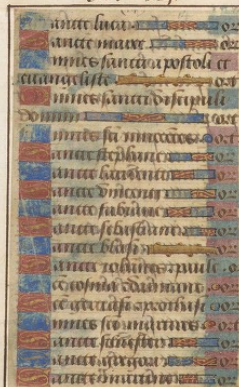 ancte luca or
ancte marce or
mnes sancti apostoli et
euangeliste orate
mnes sancti discipuli
domini orat
mnes sci innocetes or
ancte stephane or
ancte laurenti or
ancte vincenti or
ancte fabiane or
ancte sebastiane or
ancte blasi or
ancte iohannes et paule or
e cosma et damiane or
e geruasi et prothasi or
mnes sci martires or
ancte siluester or
ancte gregori or
ancte martine or